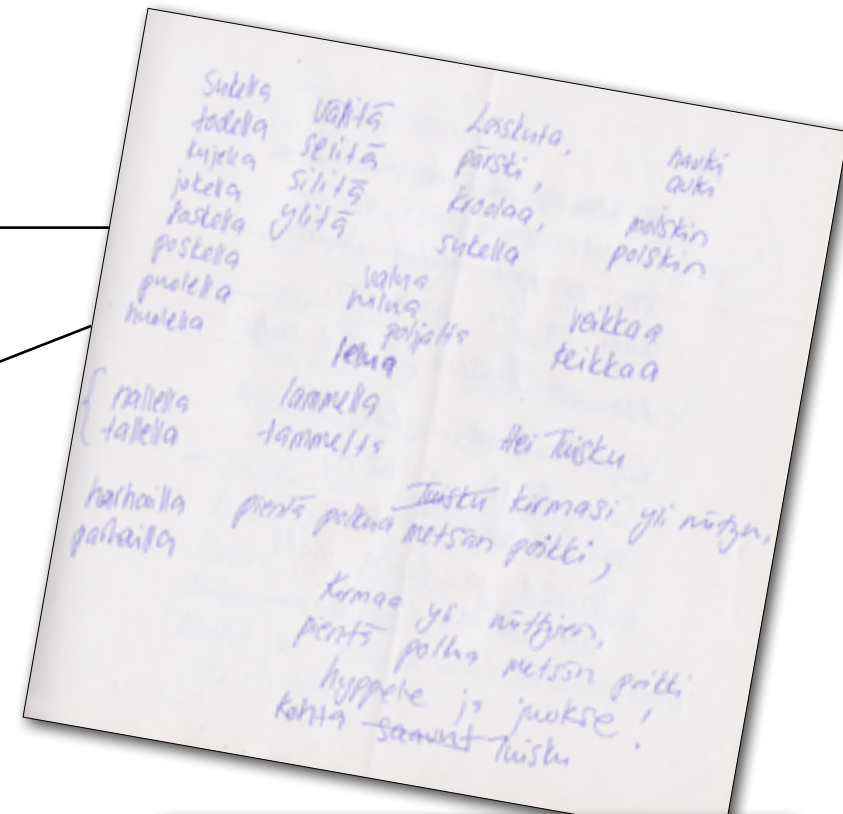 Sukella
todella
kujella
jokella
laskella
poskella
puolella
huolella
nallella
tallella
harhailla
parhailla
välitä
selitä
silitä
ylitä
valua
poljalta
lelua
lammella
tammelta
Loiskuta,
pärski,
kroolaa,
sukella
hauki
auki
molskin
polskin
veikkaa
keikkaa
Hei Tuisku
Tuisku kirmasi yli niittyjen,
pientä polkua metsän poikki,
Kirmaa yli niittyjen,
pientä polkua metsän poikki
hyppele ja juokse!
Kohta Tuisku